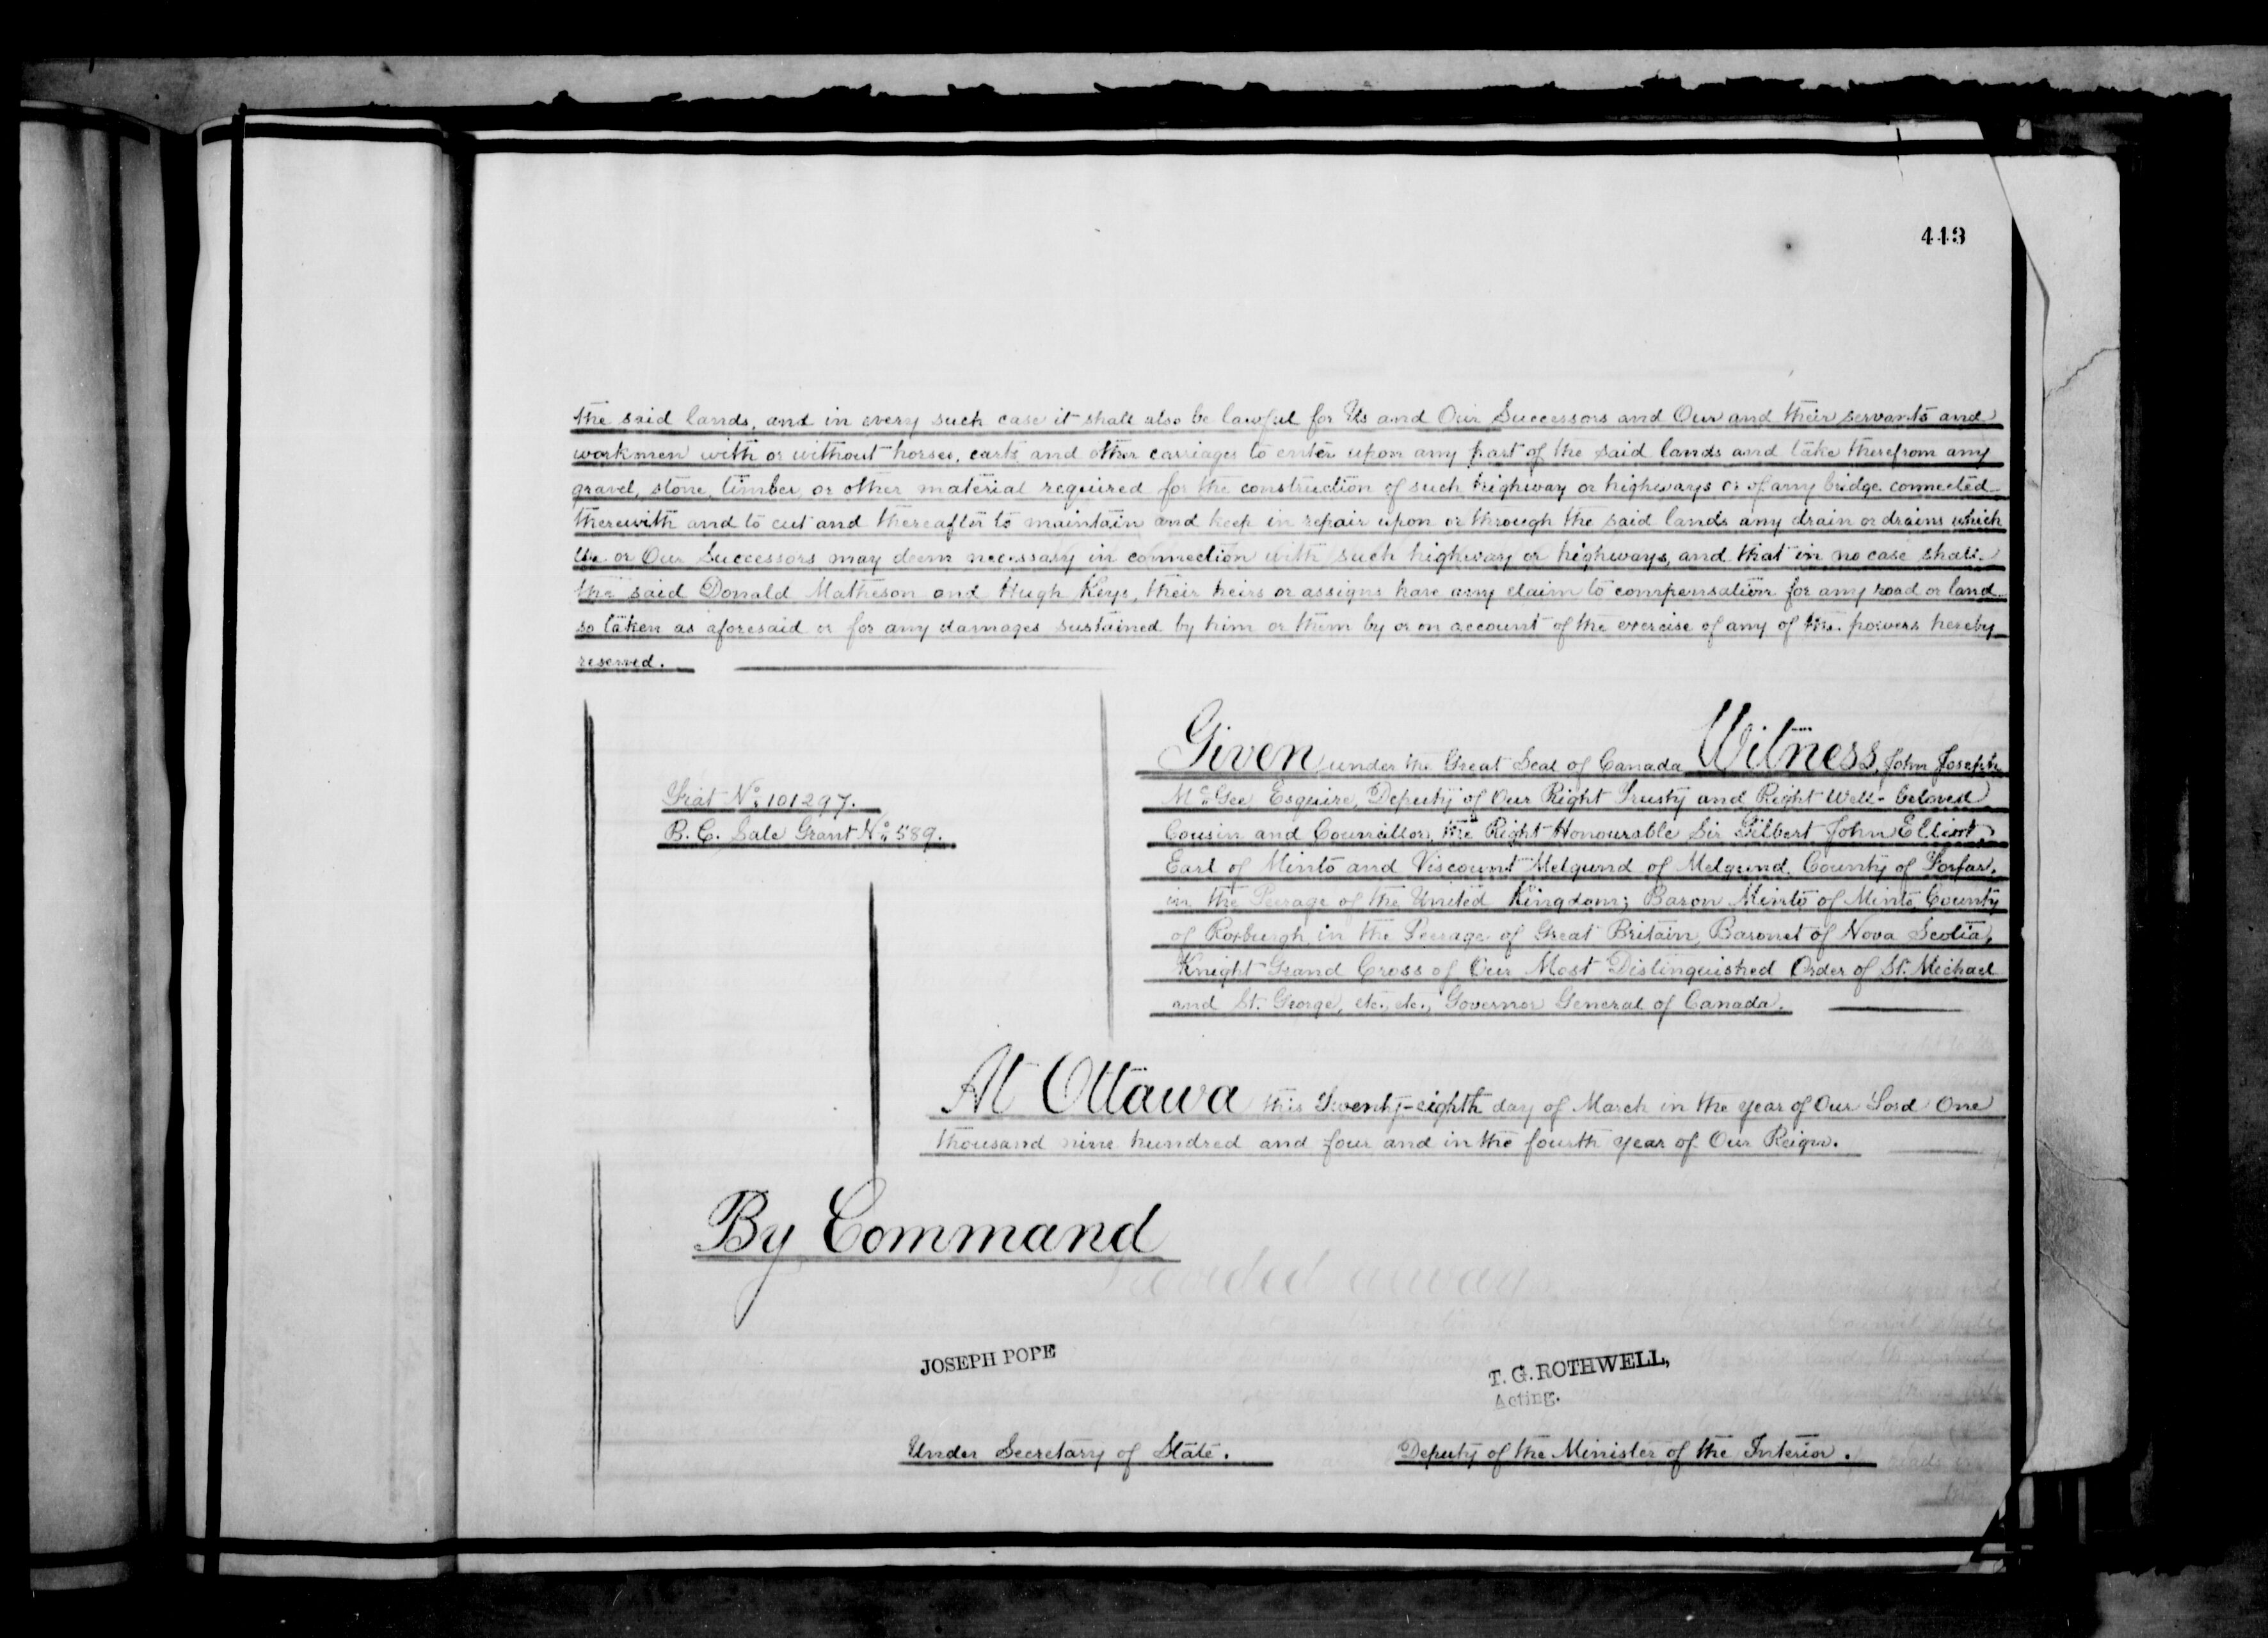 443
the said lands, and in every such case it shall also be lawful for Us and Our Successors and Our and their servants and
workmen with or without horses, carts and other carriages to enter upon any part of the said lands and take therefrom any
gravel, stone, timber or other material required for the construction of such highway or highways or of any bridge connected
therewith and to cut and thereafter to maintain and keep in repair upon or through the said lands any drain or drains which
We or Our Successors may deem necessary in connection with such highway or highways, and that in no case shall
the said Donald Matheson and Hugh Keys, their heirs or assigns have any claim to compensation for any road or land
so taken as aforesaid or for any damages sustained by him or them by or on account of the exercise of any of the powers hereby
reserved.
Fiat No. 101297.
B.C. Sale Grant No. 589.
Given under the Great Seal of Canada Witness, John Joseph
McGee Esquire, Deputy of Our Right Trusty and Right Well-beloved
Cousin and Councillor, the Right Honourable Sir Gilbert John Elliot
Earl of Minto and Viscount Melgund of Melgund, County of Forfar,
in the Peerage of the United Kingdom; Baron Minto of Minto, County
of Roxburgh, in the Peerage of Great Britain, Baronet of Nova Scotia,
Knight Grand Cross of Our Most Distinguished Order of St. Michael
and St. George, etc., etc., Governor General of Canada.
At Ottawa this Twenty-eighth day of March in the year of Our Lord One
thousand nine hundred and four and in the fourth year of Our Reign.
By Command
JOSEPH POPE
Under Secretary of State.
T. G. ROTHWELL,
Acting.
Deputy of the Minister of the Interior.